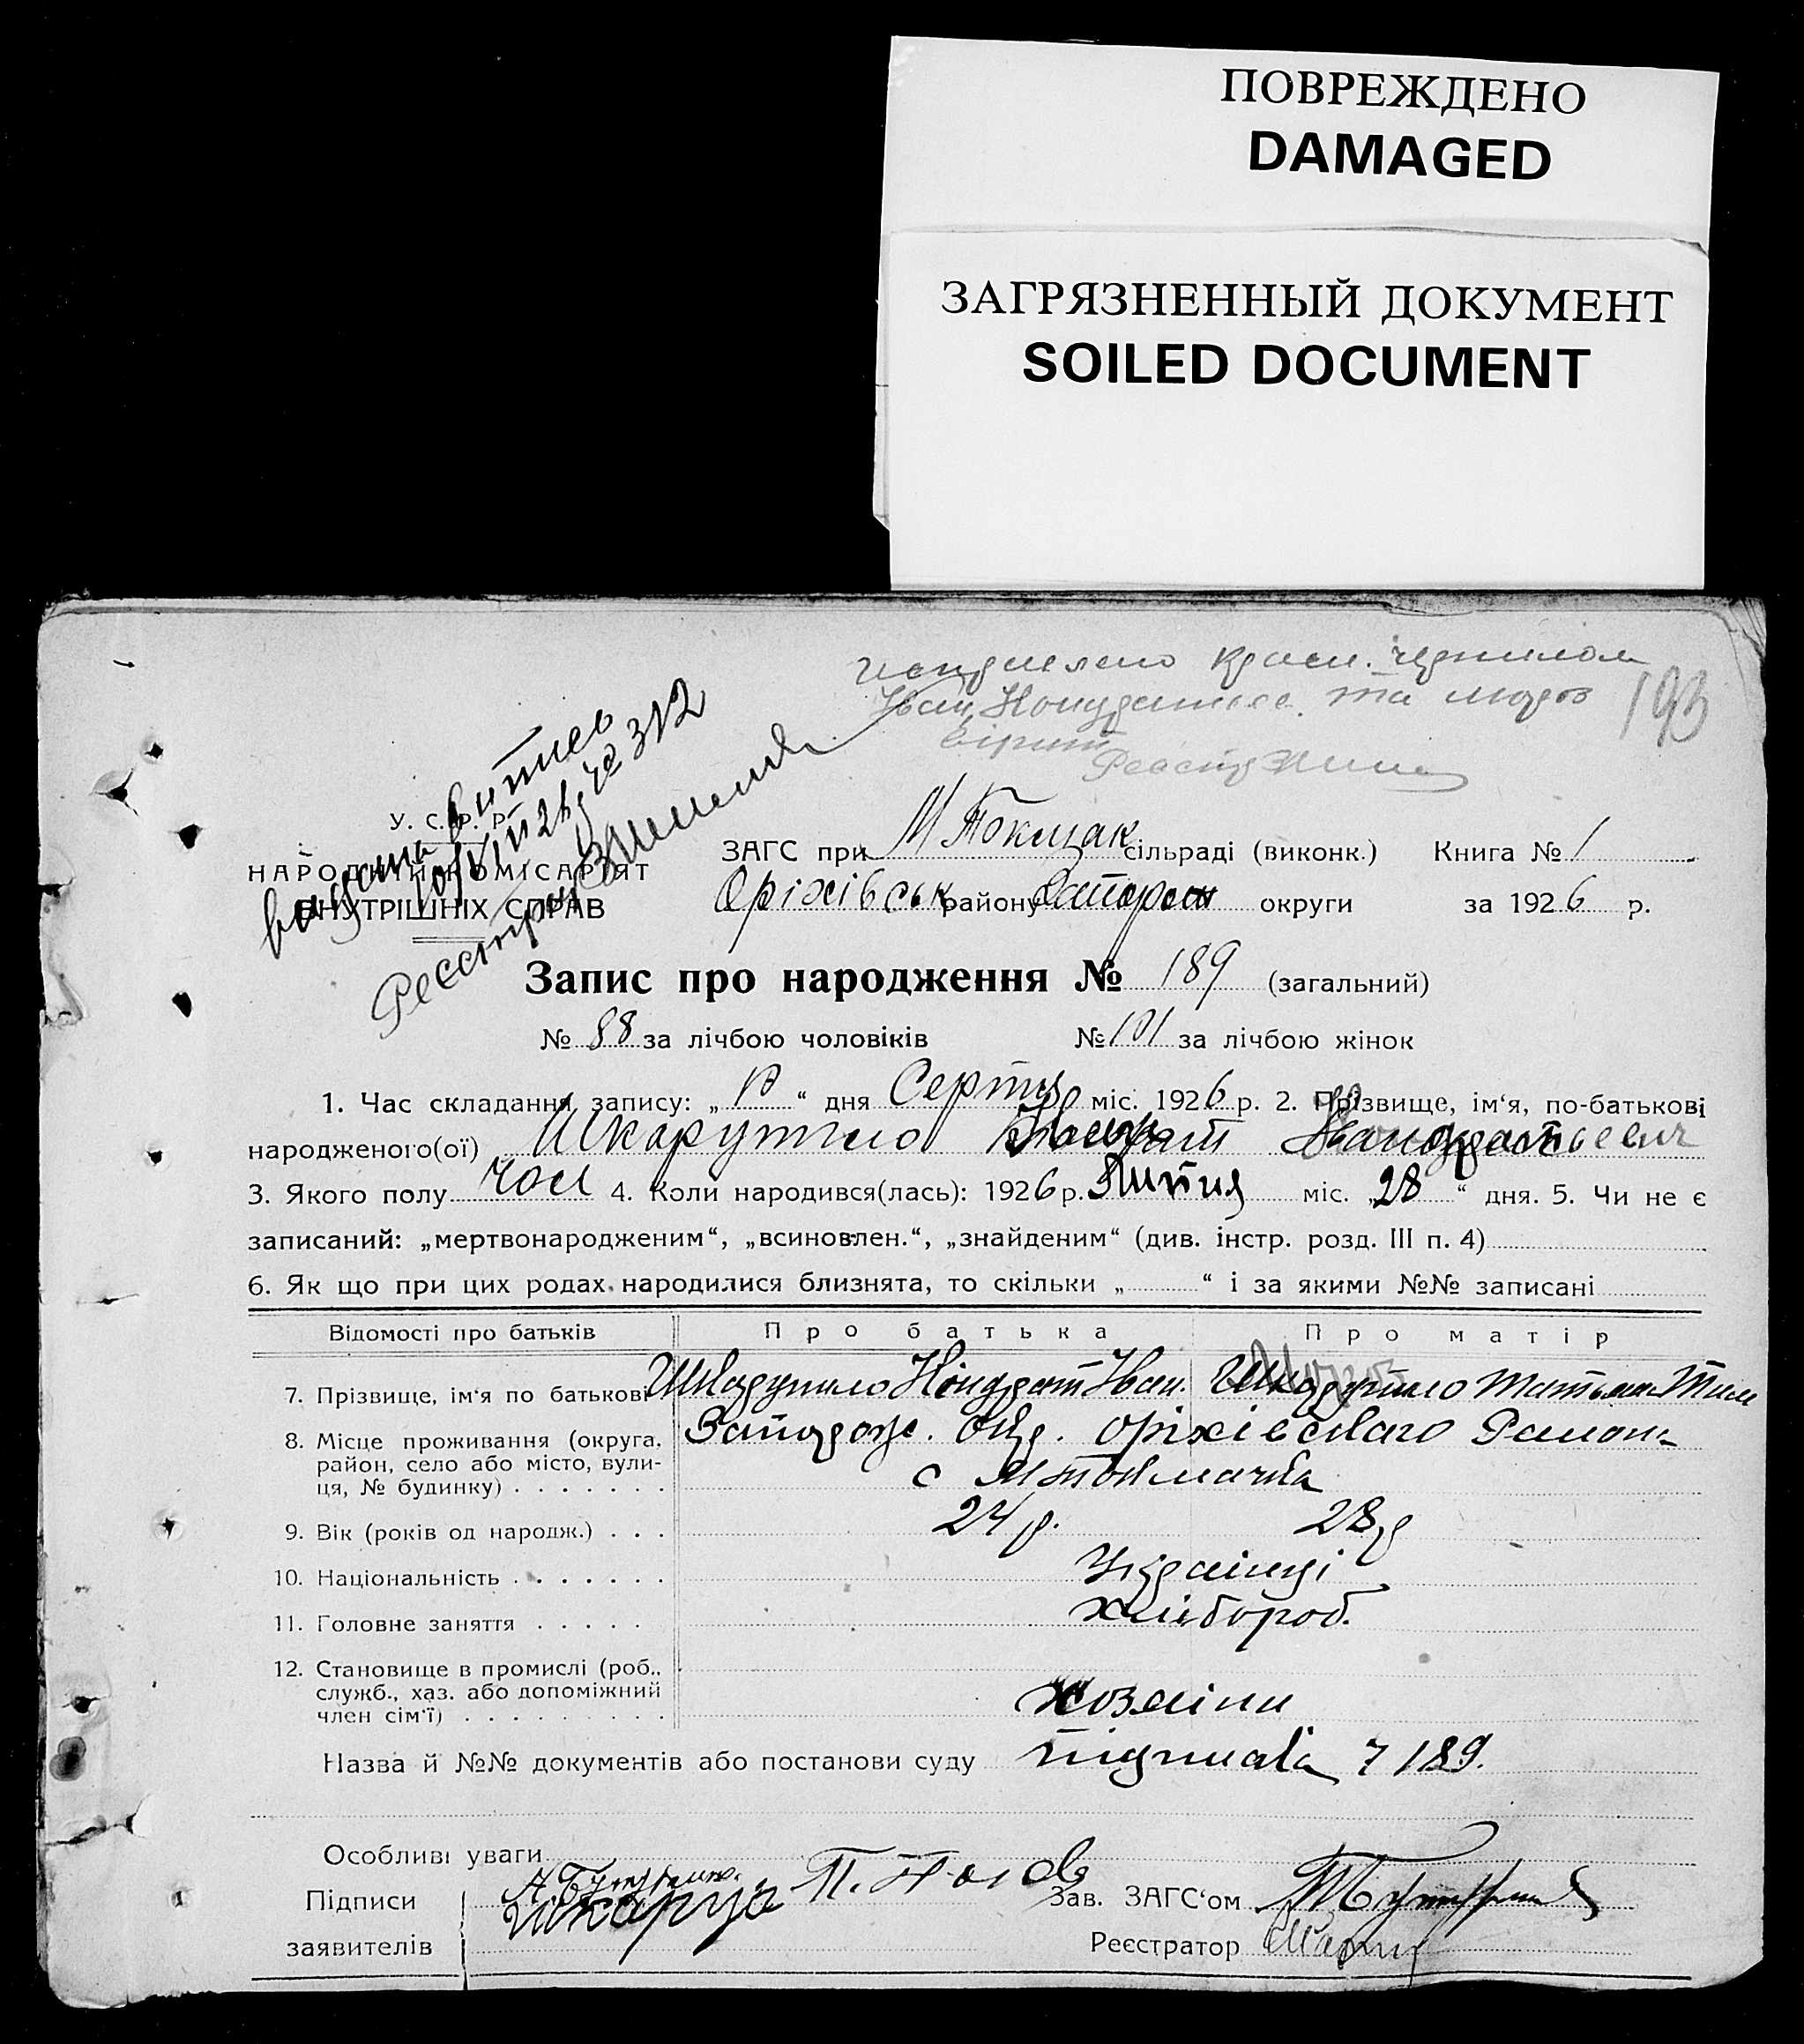 ПОВРЕЖДЕНО
DAMAGED
ЗАГРЯЗНЕННЫЙ ДОКУМЕНТ
SOILED DOCUMENT
красн. чернилом
Іван та мороз
193
вірит
У. С. Р. Р.
НАРОДНІЙ КОМІСАРІЯТ
ВНУТРІШНІХ СПРАВ
видана витяг
312
ЗАГС при М Токмак сільраді (виконк.) Книга № 1
Оріхівськ району Запорож округи за 1926 р.
Запис про народження № 189 (загальний)
№ 88 за лічбою чоловіків № 101 за лічбою жінок
1. Час складання запису: „ “ дня Серпня міс. 1926 р. 2. Прізвище, ім‘я, по-батькові
народженого(ої) Шкарупило
3. Якого полу чол 4. Коли народився(лась): 1926 р. Липня міс. „28“ дня. 5. Чи не є
записаний: „мертвонародженим“, „всиновлен.“, „знайденим“ (див. інстр. розд. III п. 4)
6. Як що при цих родах народилися близнята, то скільки „ “ і за якими №№ записані
Відомості про батьків Про батька Про матір
Мороз
7. Прізвище, ім‘я по батькові Шкарупило Кіндрат Іван. Шкарупило Татьяна Тим
8. Місце проживання (округа, район, село або місто, вулиця, № будинку) Запорож. окр. оріхівсkого Району
с М Токмачка
9. Вік (років од народж.) 24 р. 28 р
10. Національність Українці
11. Головне заняття хлібороб.
12. Становище в промислі (роб., служб., хаз. або допоміжний член сім‘ї) хозяіни
Назва й №№ документів або постанови суду 189.
Особливі уваги
Підписи
заявителів Шкаруп
Зав. ЗАГС‘ом
Реєстратор